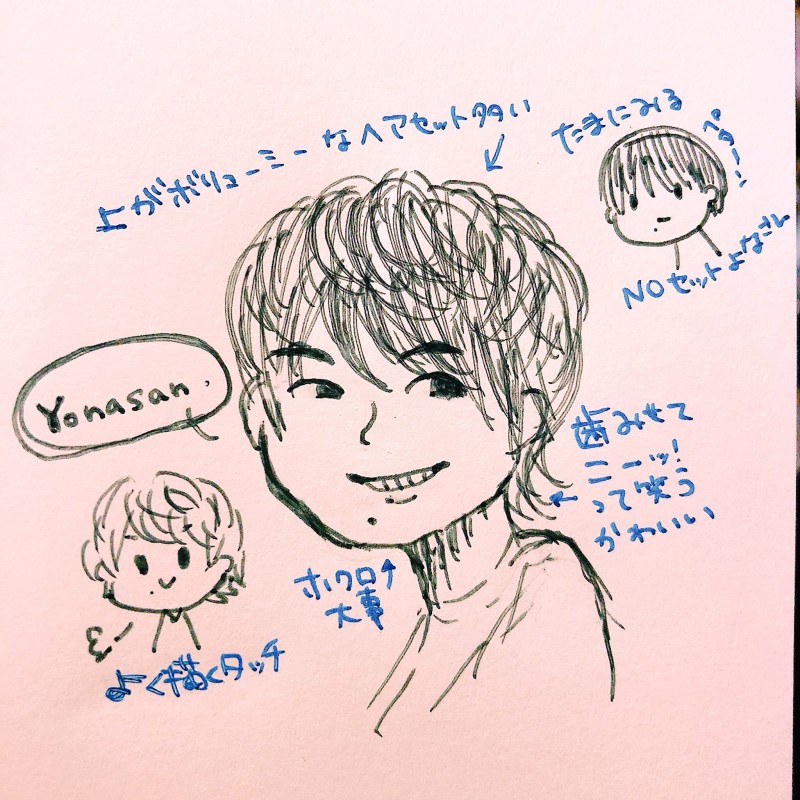 上がボリューミーなヘアセット多い
たまにみる
ペターン
NOセットよなさん
Yonasan.
歯みせて
ニーッ!
って笑う
かわいい
ホクロ↑
大事
よく描くタッチ